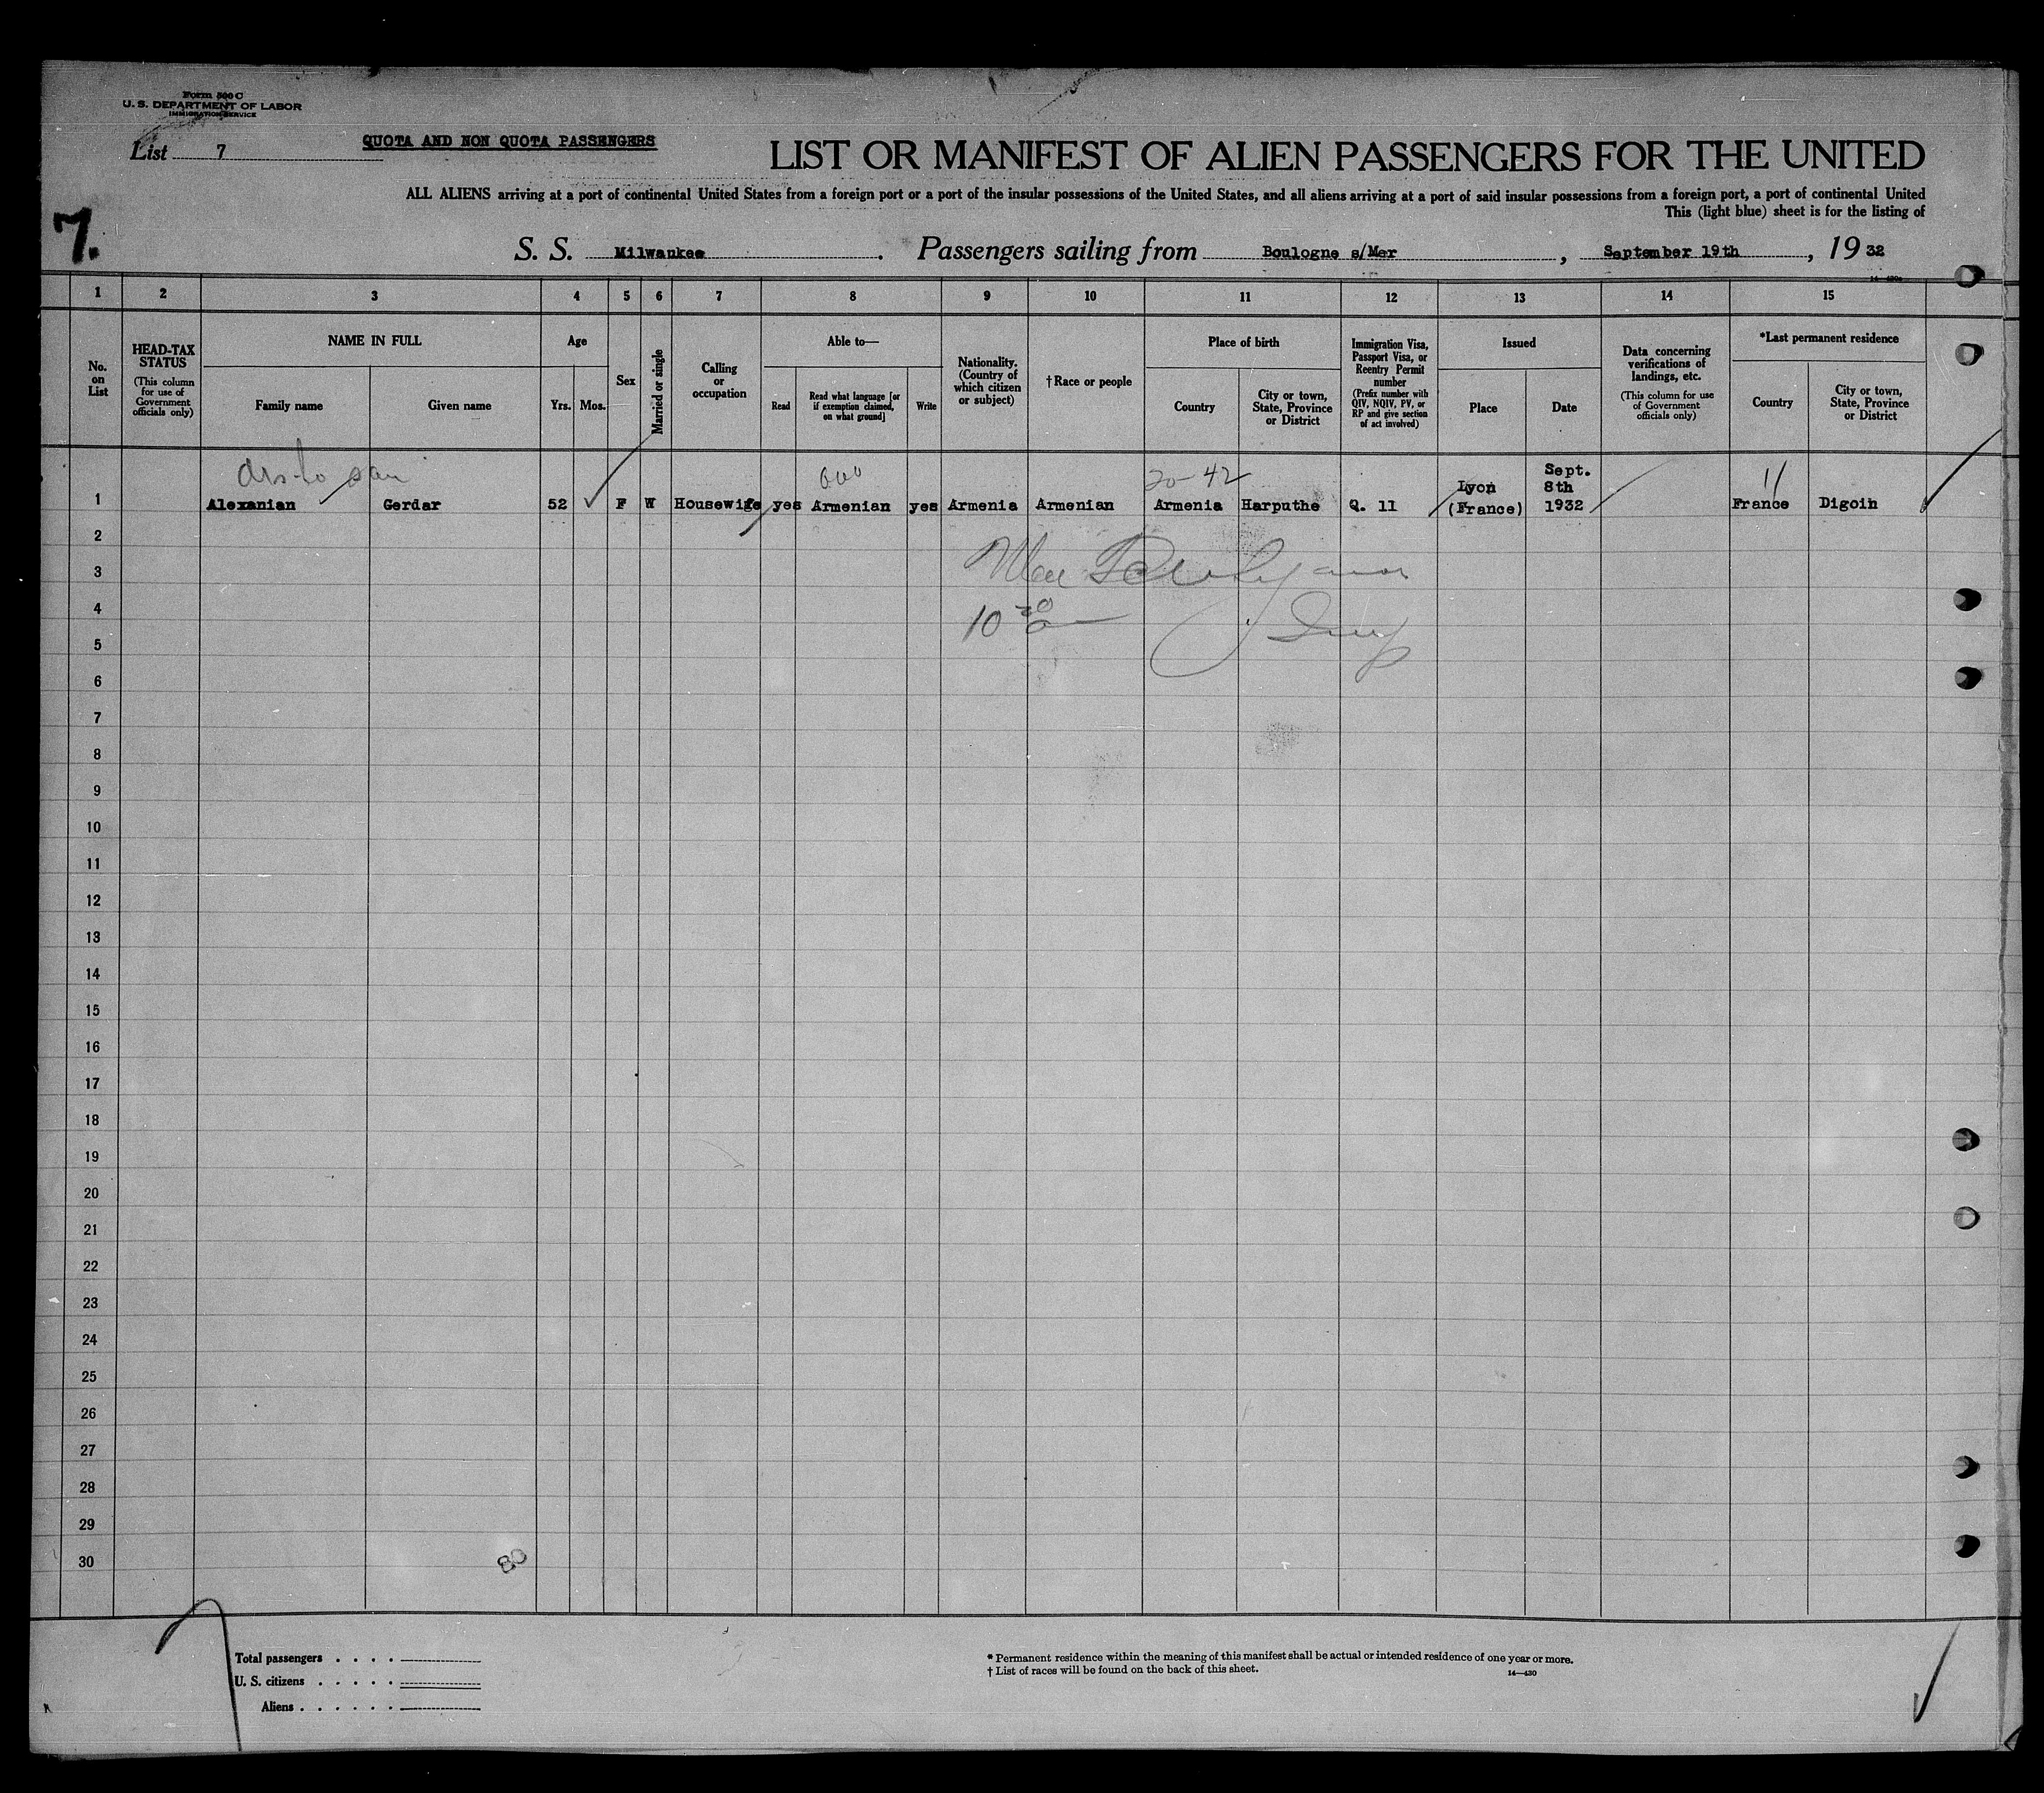 Form 500 C
U. S. DEPARTMENT OF LABOR
IMMIGRATION SERVICE
List 7
QUOTA AND NON QUOTA PASSENGERS
LIST OR MANIFEST OF ALIEN PASSENGERS FOR THE UNITED
ALL ALIENS arriving at a port of continental United States from a foreign port or a port of the insular possessions of the United States, and all aliens arriving at a port of said insular possessions from a foreign port, a port of continental United
This (light blue) sheet is for the listing of
7.
S. S. Milwankee. Passengers sailing from Boulogne s/Mer, September 19th, 19 32
1 2 3 4 5 6 7 8 9 10 11 12 13 14 15
No. on List
HEAD-TAX STATUS
(This column for use of Government officials only)
NAME IN FULL
Family name
Given name
Age
Yrs.
Mos.
Sex
Married or single
Calling or occupation
Able to—
Read
Read what language [or if exemption claimed, on what ground]
Write
Nationality. (Country of which citizen or subject)
†Race or people
Place of birth
Country
City or town, State, Province or District
Immigration Visa, Passport Visa, or Reentry Permit number
(Prefix number with QIV, NQIV, PV, or RP and give section of act involved)
Issued
Place
Date
Data concerning verifications of landings, etc.
(This column for use of Government officials only)
*Last permanent residence
Country
City or town, State, Province or District
20-42
1 Alexanian Gerdar 52 F W Housewife yes Armenian yes Armenia Armenian Armenia Harputhe Q. 11 Lyon (France) Sept. 8th 1932 France Digoin
2
3
4
5
6
7
8
9
10
11
12
13
14
15
16
17
18
19
20
21
22
23
24
25
26
27
28
29
30
80
Total passengers . . . .
U. S. citizens . . . . .
Aliens . . . . . .
* Permanent residence within the meaning of this manifest shall be actual or intended residence of one year or more.
† List of races will be found on the back of this sheet.
14—430